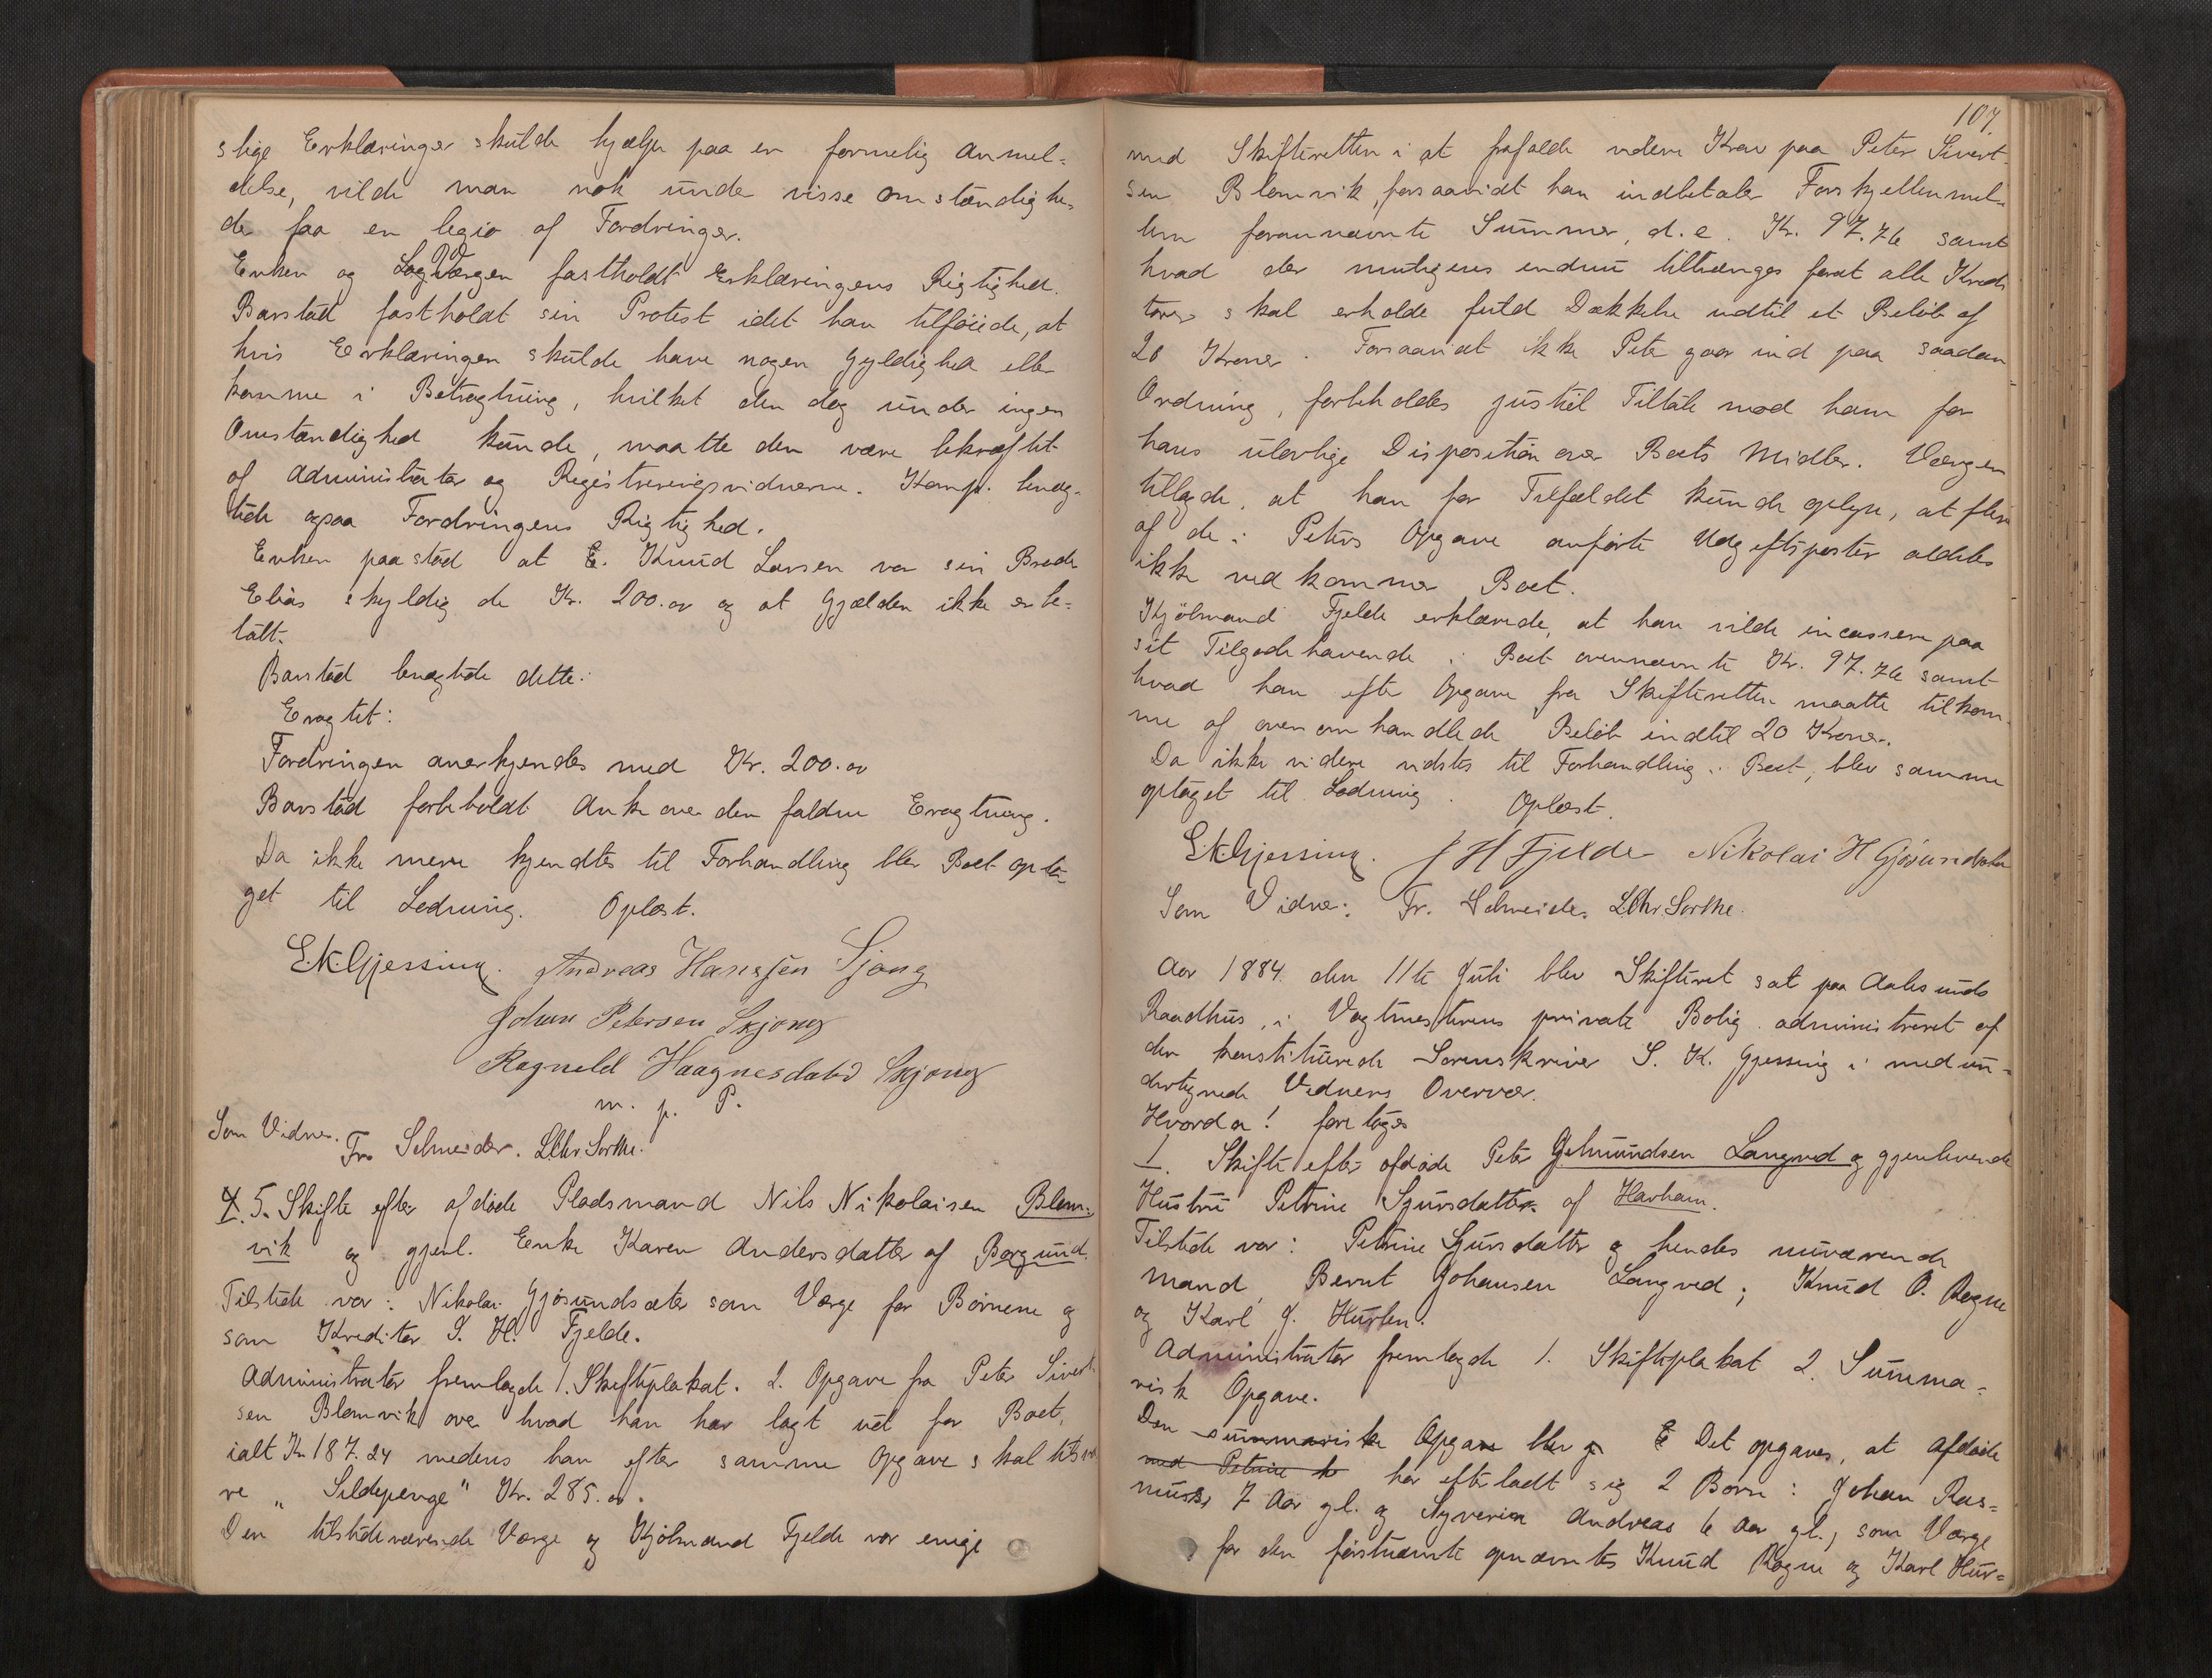 slige Erklæringer skulde hjælpe paa en formelig Anmel-
delse, vilde man nok under visse Omstændighe-
der faa en legio af Fordringer.
Enken og Lagværgen fastholdt Erklæringens Rigtighed.
Barstad fastholdt sin Protest idet han tilføiede, at
hvis Erklæringen skulde have nogen Gyldighed eller
komme i Betragtning, hvilket den dog under ingen
Omstændighed kunde, maatte den være bekræftet
af Administrator og Registreringsvidnerne. Komp. benæg-
tede ogsaa Fordringens Rigtighed.
Enken paastod at E. Knud Larsen var sin Broder
Elias skyldig de Kr. 200.00 og at Gjælden ikke er be-
talt.
Barstad benægtede dette.
Eragtet:
Fordringen anerkjendes med Kr. 200.00
Barstad forbeholdt Anke over den faldne Eragtning.
Da ikke mere kjendtes til Forhandling blev Boet opta-
get til Lodning. Oplæst.
S.K.Gjessing. Andreas Hanssen Sjong
Johan Petersen Skjong
Ragneld Haagnesdatd Skjong
m. p. P.
Som Vidner. Fr. Schneider. L.Chr. Sorthe.
4. 5. Skifte efter afdøde Pladsmand Nils Nikolaisen Blom-
vik og gjenl. Enke Karen Andersdatter af Borgund.
Tilstede var: Nikolai Gjøsundsæter som Værge for Børnene og
som Kreditor J. H. Fjelde.
Administrator fremlagde 1. Skifteplakat. 2. Opgave fra Peter Sivert-
sen Blomvik over hvad han har lagt ud for Boet,
ialt Kr. 187.24 medens han efter samme Opgave skal tilsva-
re "Sildepenge" Kr. 285.00.
Den tilstedeværende Værge og Kjøbmand Fjelde var enige
107.
med Skifteretten i at frafalde videre Krav paa Peter Sivert-
sen Blomvik, forsaavidt han indbetaler Forskjellen mel-
lem forannævnte Summer, d.e. Kr. 97.76 samt
hvad der muligens endnu tiltrænges forat alle Kredi
torer skal erholde fuld Dækkelse indtil et Beløb af
20 Kroner. Forsaavidt ikke Peter gaar ind paa saadan
Ordning, forbeholdes justiel Tiltale mod ham for
hans ulovlige Disposition over Boets Midler. Værgen
tillagde, at han for Tilfældet kunde oplyse, at flere
af de i Peters Opgave anførte Udgiftsposter aldeles
ikke vedkommer Boet.
Kjöbmand Fjelde erklærede, at han vilde incassere paa
sit Tilgodehavende i Boet ovennævnte Kr. 97.76 samt
hvad han efter Opgave fra Skifteretten maatte tilkom-
me af ovenomhandlede Beløb indtil 20 Kroner.
Da ikke videre vidstes til Forhandling i Boet, blev samme
optaget til Lodning. Oplæst.
S.K.Gjessing. J H Fjelde Nikolai H Gjøsundsæter
Som Vidner: Fr. Schneider L.Chr. Sorthe.
Aar 1884 den 11te Juli blev Skifteret sat paa Aalesunds
Raadhus, i Vagtmesterens private Bolig administreret af
den konstituerede Sorenskriver S. K. Gjessing i medun-
dertegnede Vidners Overvær.
Hvorda! foretoges
1. Skifte efter afdøde Peter Gjelmundsen Langved og gjenlevende
Hustru Petrine Sjursdatter af Harham.
Tilstede var: Petrine Sjursdatter og hendes nuværende
Mand Bernt Johansen Langved; Knud O. Rogne
og Karl J. Hurlen.
Administrator fremlagde 1. Skifteplakat 2. Summa-
risk Opgave.
Den summariske Opgave blev Det opgaves, at Afdøde
med Petrine har efterladt sig 2 Børn: Johan Ras-
mus, 7 Aar gl. og Syverin Andreas 6 Aar gl., som Værge
for den førstnævnte opnævntes Knud Rogne og Karl Hur-